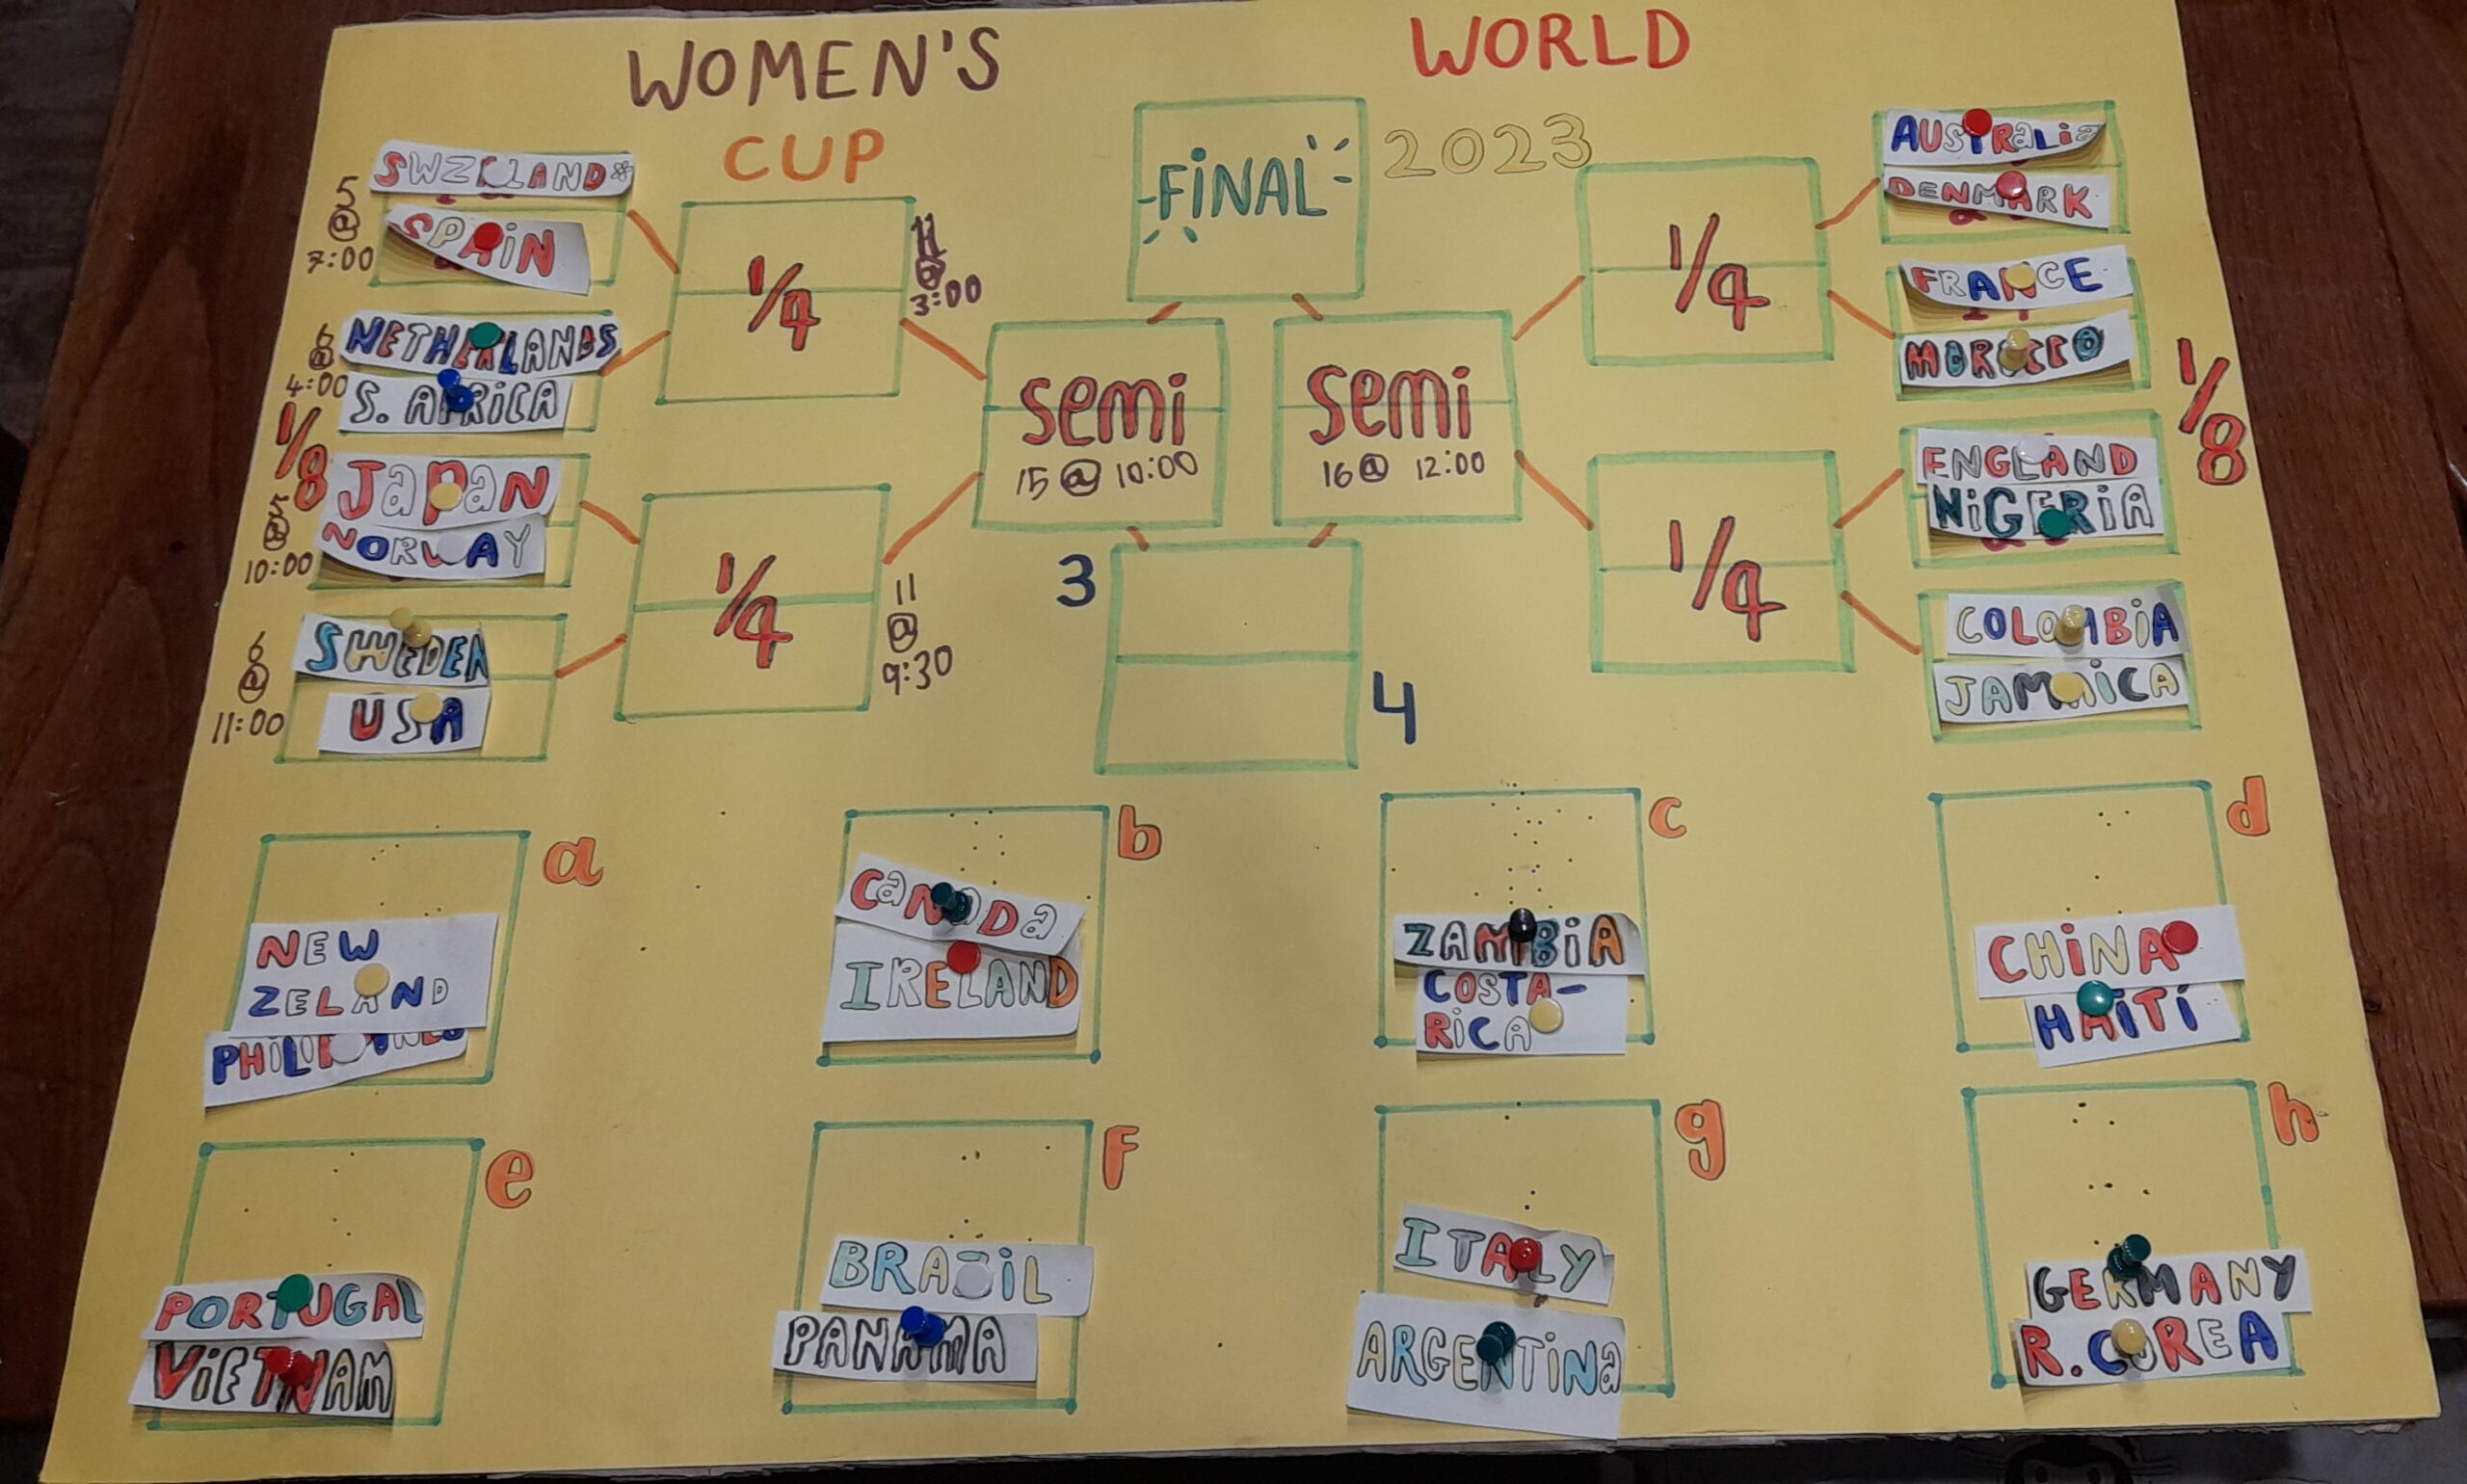 WOMEN'S WORLD
CUP 2023
-FINAL-
SWZRLAND*
SPAIN
5
@
7:00
NETHERLANDS
S. AFRICA
6
@
4:00
1/8
JaPaN
NORWAY
5
@
10:00
SWEDEN
USA
6
@
11:00
1/4
11
@
3:00
1/4
11
@
9:30
semi
15 @ 10:00
semi
16 @ 12:00
3
4
1/4
1/4
AUSTRaLia
DENMARK
FRANCE
MOROCCO
1/8
ENGLAND
NiGERiA
COLOMBiA
JAMAiCA
a
NEW
ZELAND
PHILIPPINES
b
CaNaDa
IRELAND
c
ZAMBiA
COSTA-
RiCA
d
CHiNA
HAiTi
e
PORTUGAL
ViETNAM
F
BRAZiL
PANAMA
g
ITALY
ARGENTiNa
h
GERMANY
R. COREA